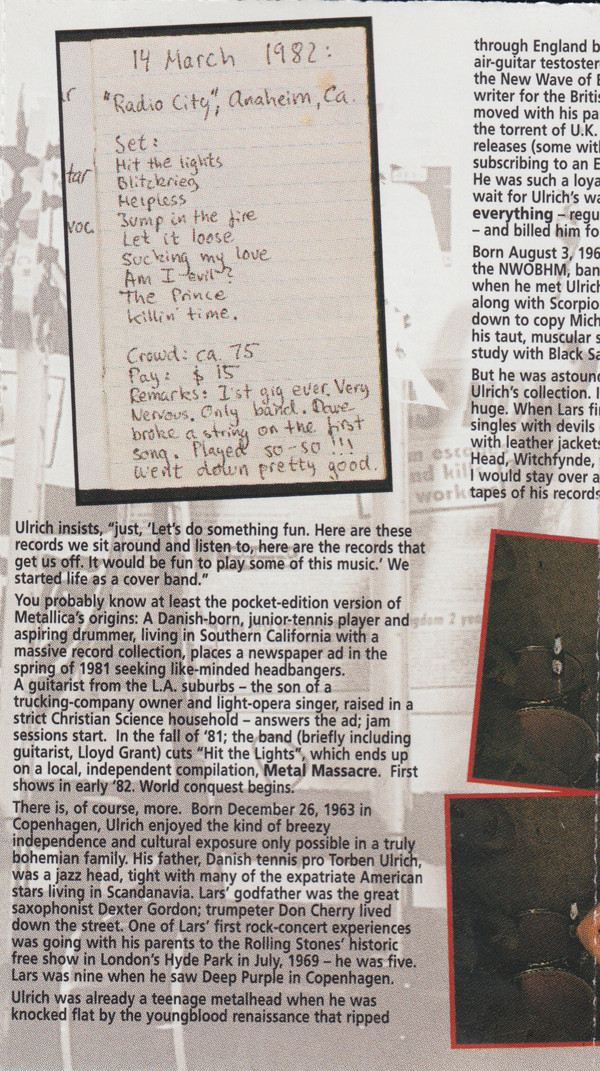 14 March 1982:
"Radio City", Anaheim, Ca.
Set:
Hit the lights
Blitzkrieg
Helpless
Jump in the fire
Let it loose
Sucking my love
Am I evil?
The Prince
Killin' time.
Crowd: ca. 75
Pay: $ 15
Remarks: I'st gig ever. Very
Nervous. Only band. Dave
broke a string on the first
song. Played so-so !!!
Went down pretty good.
tar
voc.
Ulrich insists, "just, 'Let's do something fun. Here are these
records we sit around and listen to, here are the records that
get us off. It would be fun to play some of this music.' We
started life as a cover band."
You probably know at least the pocket-edition version of
Metallica's origins: A Danish-born, junior-tennis player and
aspiring drummer, living in Southern California with a
massive record collection, places a newspaper ad in the
spring of 1981 seeking like-minded headbangers.
A guitarist from the L.A. suburbs – the son of a
trucking-company owner and light-opera singer, raised in a
strict Christian Science household – answers the ad; jam
sessions start. In the fall of '81; the band (briefly including
guitarist, Lloyd Grant) cuts "Hit the Lights", which ends up
on a local, independent compilation, Metal Massacre. First
shows in early '82. World conquest begins.
There is, of course, more. Born December 26, 1963 in
Copenhagen, Ulrich enjoyed the kind of breezy
independence and cultural exposure only possible in a truly
bohemian family. His father, Danish tennis pro Torben Ulrich,
was a jazz head, tight with many of the expatriate American
stars living in Scandanavia. Lars' godfather was the great
saxophonist Dexter Gordon; trumpeter Don Cherry lived
down the street. One of Lars' first rock-concert experiences
was going with his parents to the Rolling Stones' historic
free show in London's Hyde Park in July, 1969 – he was five.
Lars was nine when he saw Deep Purple in Copenhagen.
Ulrich was already a teenage metalhead when he was
knocked flat by the youngblood renaissance that ripped
through England b
air-guitar testoster
the New Wave of B
writer for the Britis
moved with his pa
the torrent of U.K.
releases (some wit
subscribing to an E
He was such a loya
wait for Ulrich's wa
everything – regu
– and billed him fo
Born August 3, 196
the NWOBHM, ban
when he met Ulrich
along with Scorpio
down to copy Mich
his taut, muscular s
study with Black Sa
But he was astoun
Ulrich's collection. I
huge. When Lars fi
singles with devils
with leather jackets
Head, Witchfynde,
I would stay over a
tapes of his records